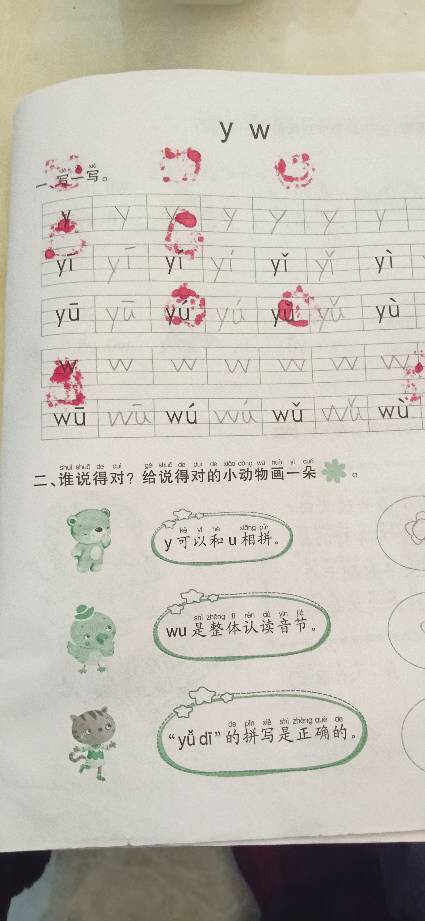 y w
xiě xiě
一、写一写。
y y y y y y y
yī yī yí yí yǐ yǐ yì
yū yū yú yú yǔ yǔ yù
w w w w w w w
wū wū wú wú wǔ wǔ wù
shuí shuō de duì gěi shuō de duì de xiǎo dòng wù huà yì duǒ
二、谁说得对？给说得对的小动物画一朵。
kě yǐ hé xiāng pīn
y可以和u相拼。
shì zhěng tǐ rèn dú yīn jié
wu是整体认读音节。
de pīn xiě shì zhèng què de
“yǔ dī”的拼写是正确的。